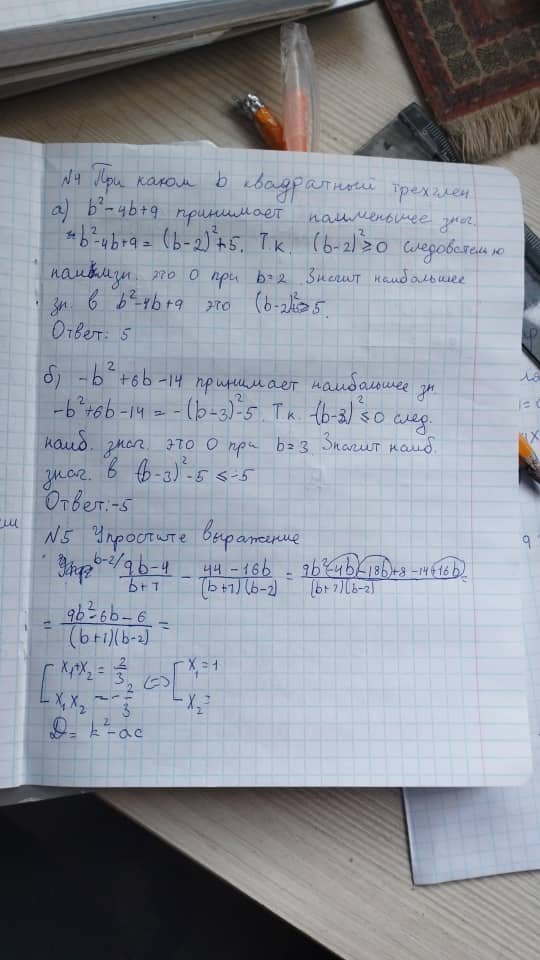 N4 При каком b квадратный трехчлен
а) b²-4b+9 принимает наименьшее знач.
b²-4b+9 = (b-2)²+5. Т.к. (b-2)²≥0 следовательно
это 0 при b=2 Значит наибольшее
зн. в b²-4b+9 это (b-2)²≥5.
Ответ: 5
б) -b²+6b-14 принимает наибольшее зн.
-b²+6b-14 = -(b-3)²-5. Т.к. -(b-3)²≤0 след.
наиб. знач. это 0 при b=3 Значит наиб.
знач. в (b-3)²-5 ≤ -5
Ответ: -5
N5 Упростите выражение
b-2/ 9b-4/b+7 - 44-16b/(b+7)(b-2) = 9b²-4b-18b+8-14+16b/(b+7)(b-2) =
= 9b²-6b-6/(b+7)(b-2) =
[ x₁+x₂ = 2/3 <=> [ x₁=1
x₁x₂ = -2/3 x₂=
D = k²-ac